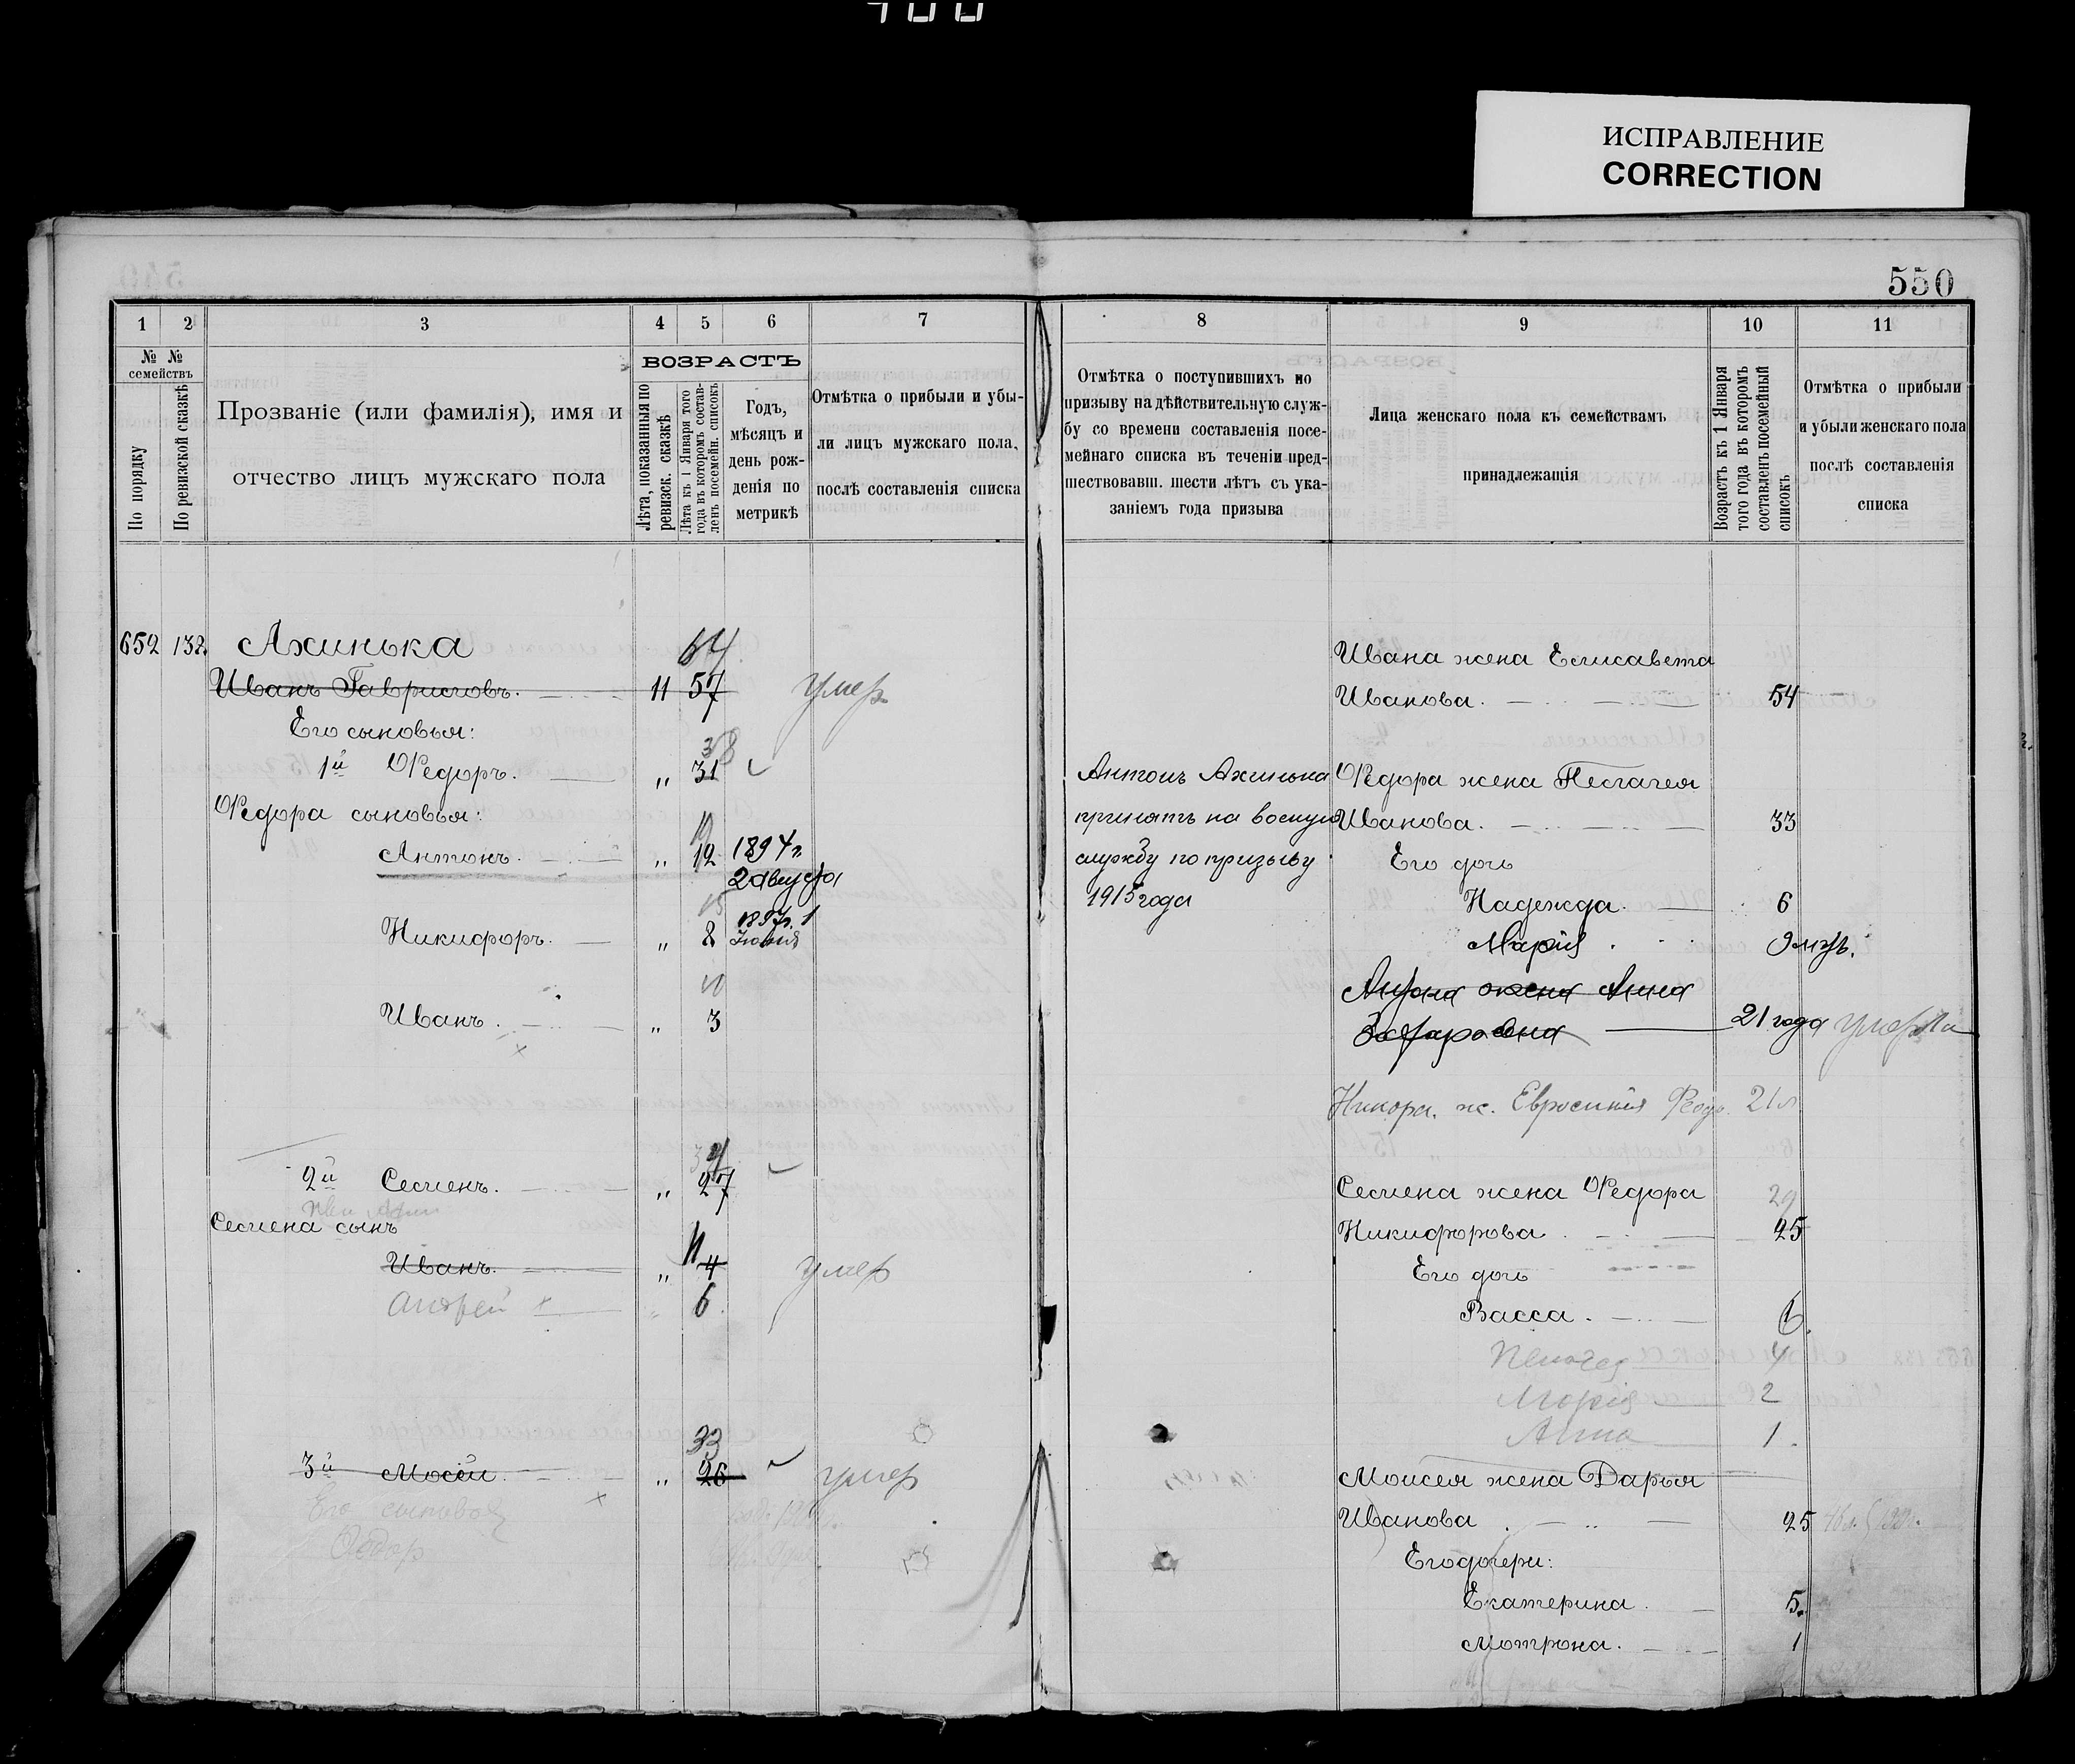 ИСПРАВЛЕНИЕ
CORRECTION
550
1 2 3 4 5 6 7
№ № семействъ
По порядку
По ревизской сказкѣ
Прозваніе (или фамилія), имя и
отчество лицъ мужскаго пола
ВОЗРАСТЪ
Лѣта, показанныя по
ревизск. сказкѣ
Лѣта къ 1 Января того
года въ которомъ состав-
ленъ посемейн. списокъ
Годъ,
мѣсяцъ и
день рож-
денія по
метрикѣ
Отмѣтка о прибыли и убы-
ли лицъ мужскаго пола,
послѣ составленія списка
652 132 Ахинька 64
Иванъ Гавриловъ. 11 57 умер
Его сыновья:
38
1й Ѳедоръ. „ 31
Ѳедора сыновья:
19
Антонъ. „ 12 1894 г.
2 августа
15
Никифоръ. „ 8 1897г. 1
Іюня
10
Иванъ. „ 3
34
2й Семенъ. „ 27
Семена сынъ
11
Иванъ. „ 4 умер
Андрей „ 6
33
3й Мосей. „ 26 умер
Его сыновья
Ѳедор
8 9 10 11
Отмѣтка о поступившихъ по
призыву на дѣйствительную служ-
бу со времени составленія посе-
мейнаго списка въ теченіи пред-
шествовавш. шести лѣтъ съ ука-
заніемъ года призыва
Лица женскаго пола къ семействамъ
принадлежащія
Возрастъ къ 1 Января
того года въ которомъ
составленъ посемейный
списокъ
Отмѣтка о прибыли
и убыли женскаго пола
послѣ составленія
списка
Ивана жена Елисавета
Иванова. 54
Антонъ Ахинька
принятъ на воєную
службу по призыву
1915 года
Ѳедора жена Пелагея
Иванова. 33
Его дочь
Надежда. 6
Марія. 9 мѣс.
Антона жена Анна
Захаровна 21 года умерла
Никифора. ж. Евросинія Ѳедо. 21 л
Семена жена Ѳедора 29
Никифорова. 25
Его дочь
Васса. 6
Пелагея 4
Марія 2
Анна 1.
Моисея жена Дарья
Иванова 25
Его дочери:
Екатерина. 5.
Мотрона. 1